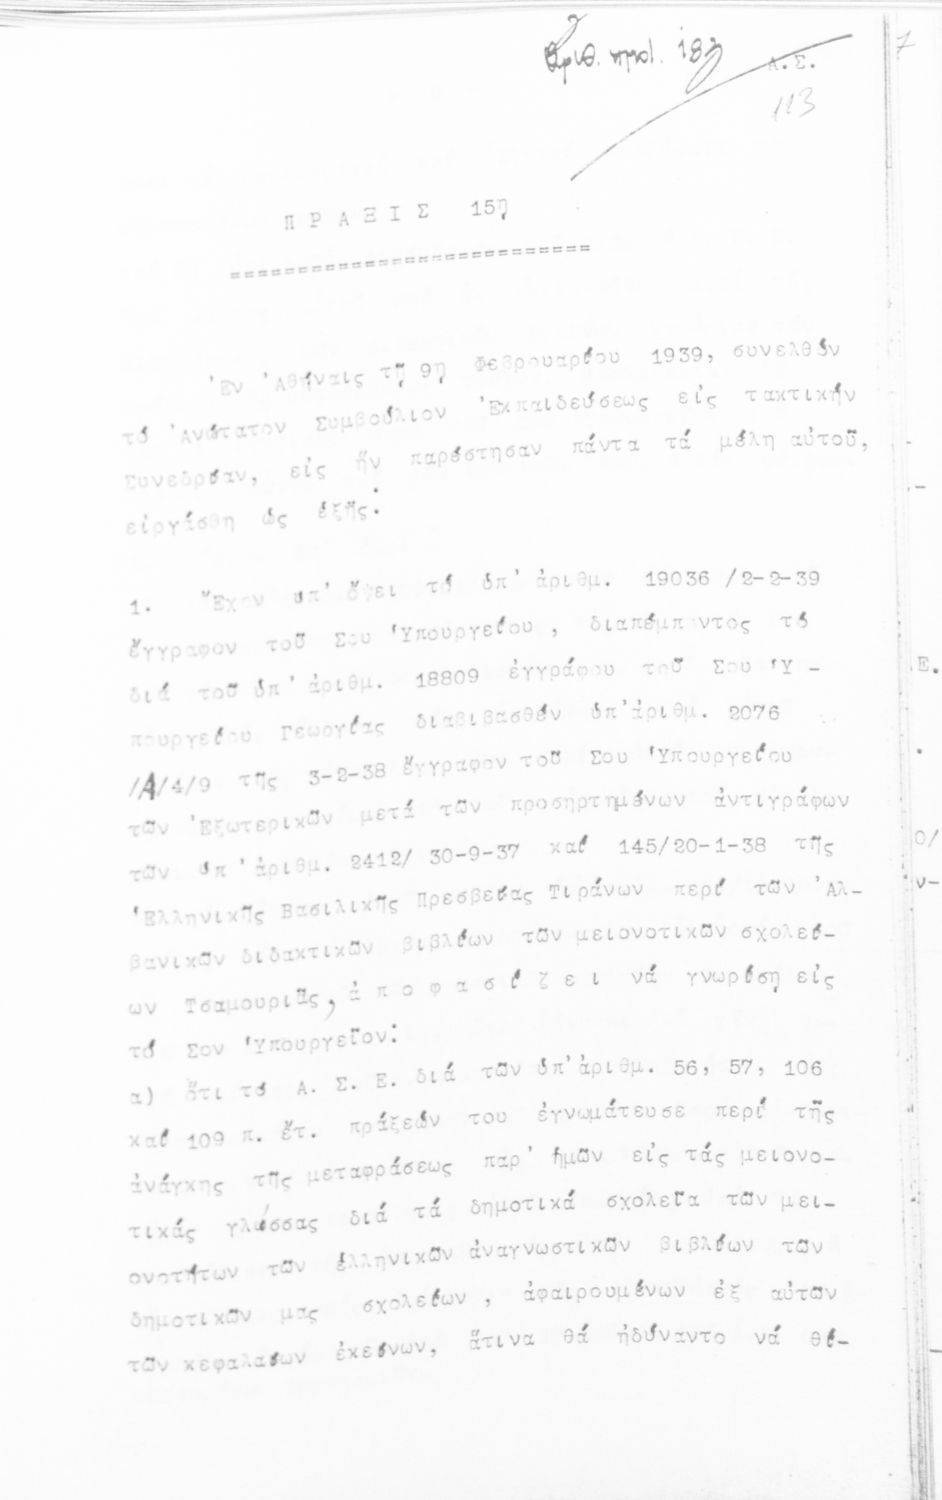 Αριθ. πρωτ. 187
Α.Σ.
113
7
ΠΡΑΞΙΣ 15η
===========================
Ἐν Ἀθήναις τῇ 9ῃ Φεβρουαρίου 1939, συνελθόν
τό Ἀνώτατον Συμβούλιον Ἐκπαιδεύσεως εἰς τακτικήν
Συνεδρίαν, εἰς ἥν παρέστησαν πάντα τά μέλη αὐτοῦ,
εἰργάσθη ὡς ἑξῆς:
1. Ἔχον ὑπ' ὄψει τό ὑπ' ἀριθμ. 19036 /2-2-39
ἔγγραφον τοῦ Σου Ὑπουργείου, διαπέμποντος τό
διά τοῦ ὑπ' ἀριθμ. 18809 ἐγγράφου τοῦ Σου Ὑ-
πουργείου Γεωργίας διαβιβασθέν ὑπ' ἀριθμ. 2076
/Α/4/9 τῆς 3-2-38 ἔγγραφον τοῦ Σου Ὑπουργείου
τῶν Ἐξωτερικῶν μετά τῶν προσηρτημένων ἀντιγράφων
τῶν ὑπ' ἀριθμ. 2412/ 30-9-37 καί 145/20-1-38 τῆς
Ἑλληνικῆς Βασιλικῆς Πρεσβείας Τιράνων περί τῶν Ἀλ-
βανικῶν διδακτικῶν βιβλίων τῶν μειονοτικῶν σχολεί-
ων Τσαμουριᾶς, ἀ π ο φ α σ ί ζ ε ι νά γνωρίσῃ εἰς
τό Σον Ὑπουργεῖον:
α) ὅτι τό Α. Σ. Ε. διά τῶν ὑπ' ἀριθμ. 56, 57, 106
καί 109 π. ἔτ. πράξεών του ἐγνωμάτευσε περί τῆς
ἀνάγκης τῆς μεταφράσεως παρ' ἡμῶν εἰς τάς μειονο-
τικάς γλώσσας διά τά δημοτικά σχολεῖα τῶν μει-
ονοτήτων τῶν ἑλληνικῶν ἀναγνωστικῶν βιβλίων τῶν
δημοτικῶν μας σχολείων, ἀφαιρουμένων ἐξ αὐτῶν
τῶν κεφαλαίων ἐκείνων, ἅτινα θά ἠδύναντο νά θί-
Ε.
0/
ν-